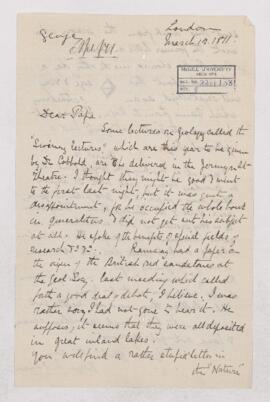 George
London
March 1871
McGILL UNIVERSITY
ARCHIVES
ACC. NO.
Dear Papa
Some lectures on Geology called the
"Swiney lectures", which are this year to be given
by Dr Cobbold, are to be delivered in the Jermyn St
Theatre. I thought they might be good & went
to the first last night, but it was quite a
disappointment, for he occupied the whole hour
in generalities & did not get into his subject
at all. He spoke of the benefits of special fields of
research &c &c. Ramsay had a paper on
the origin of the British red sandstones at
the Geol Soc. last meeting which called
forth a good deal of debate, I believe. I was
rather sorry I had not gone to hear it. He
supposes, it seems that they were all deposited
in great inland lakes.
You will find a rather stupid letter in
the "Nature"